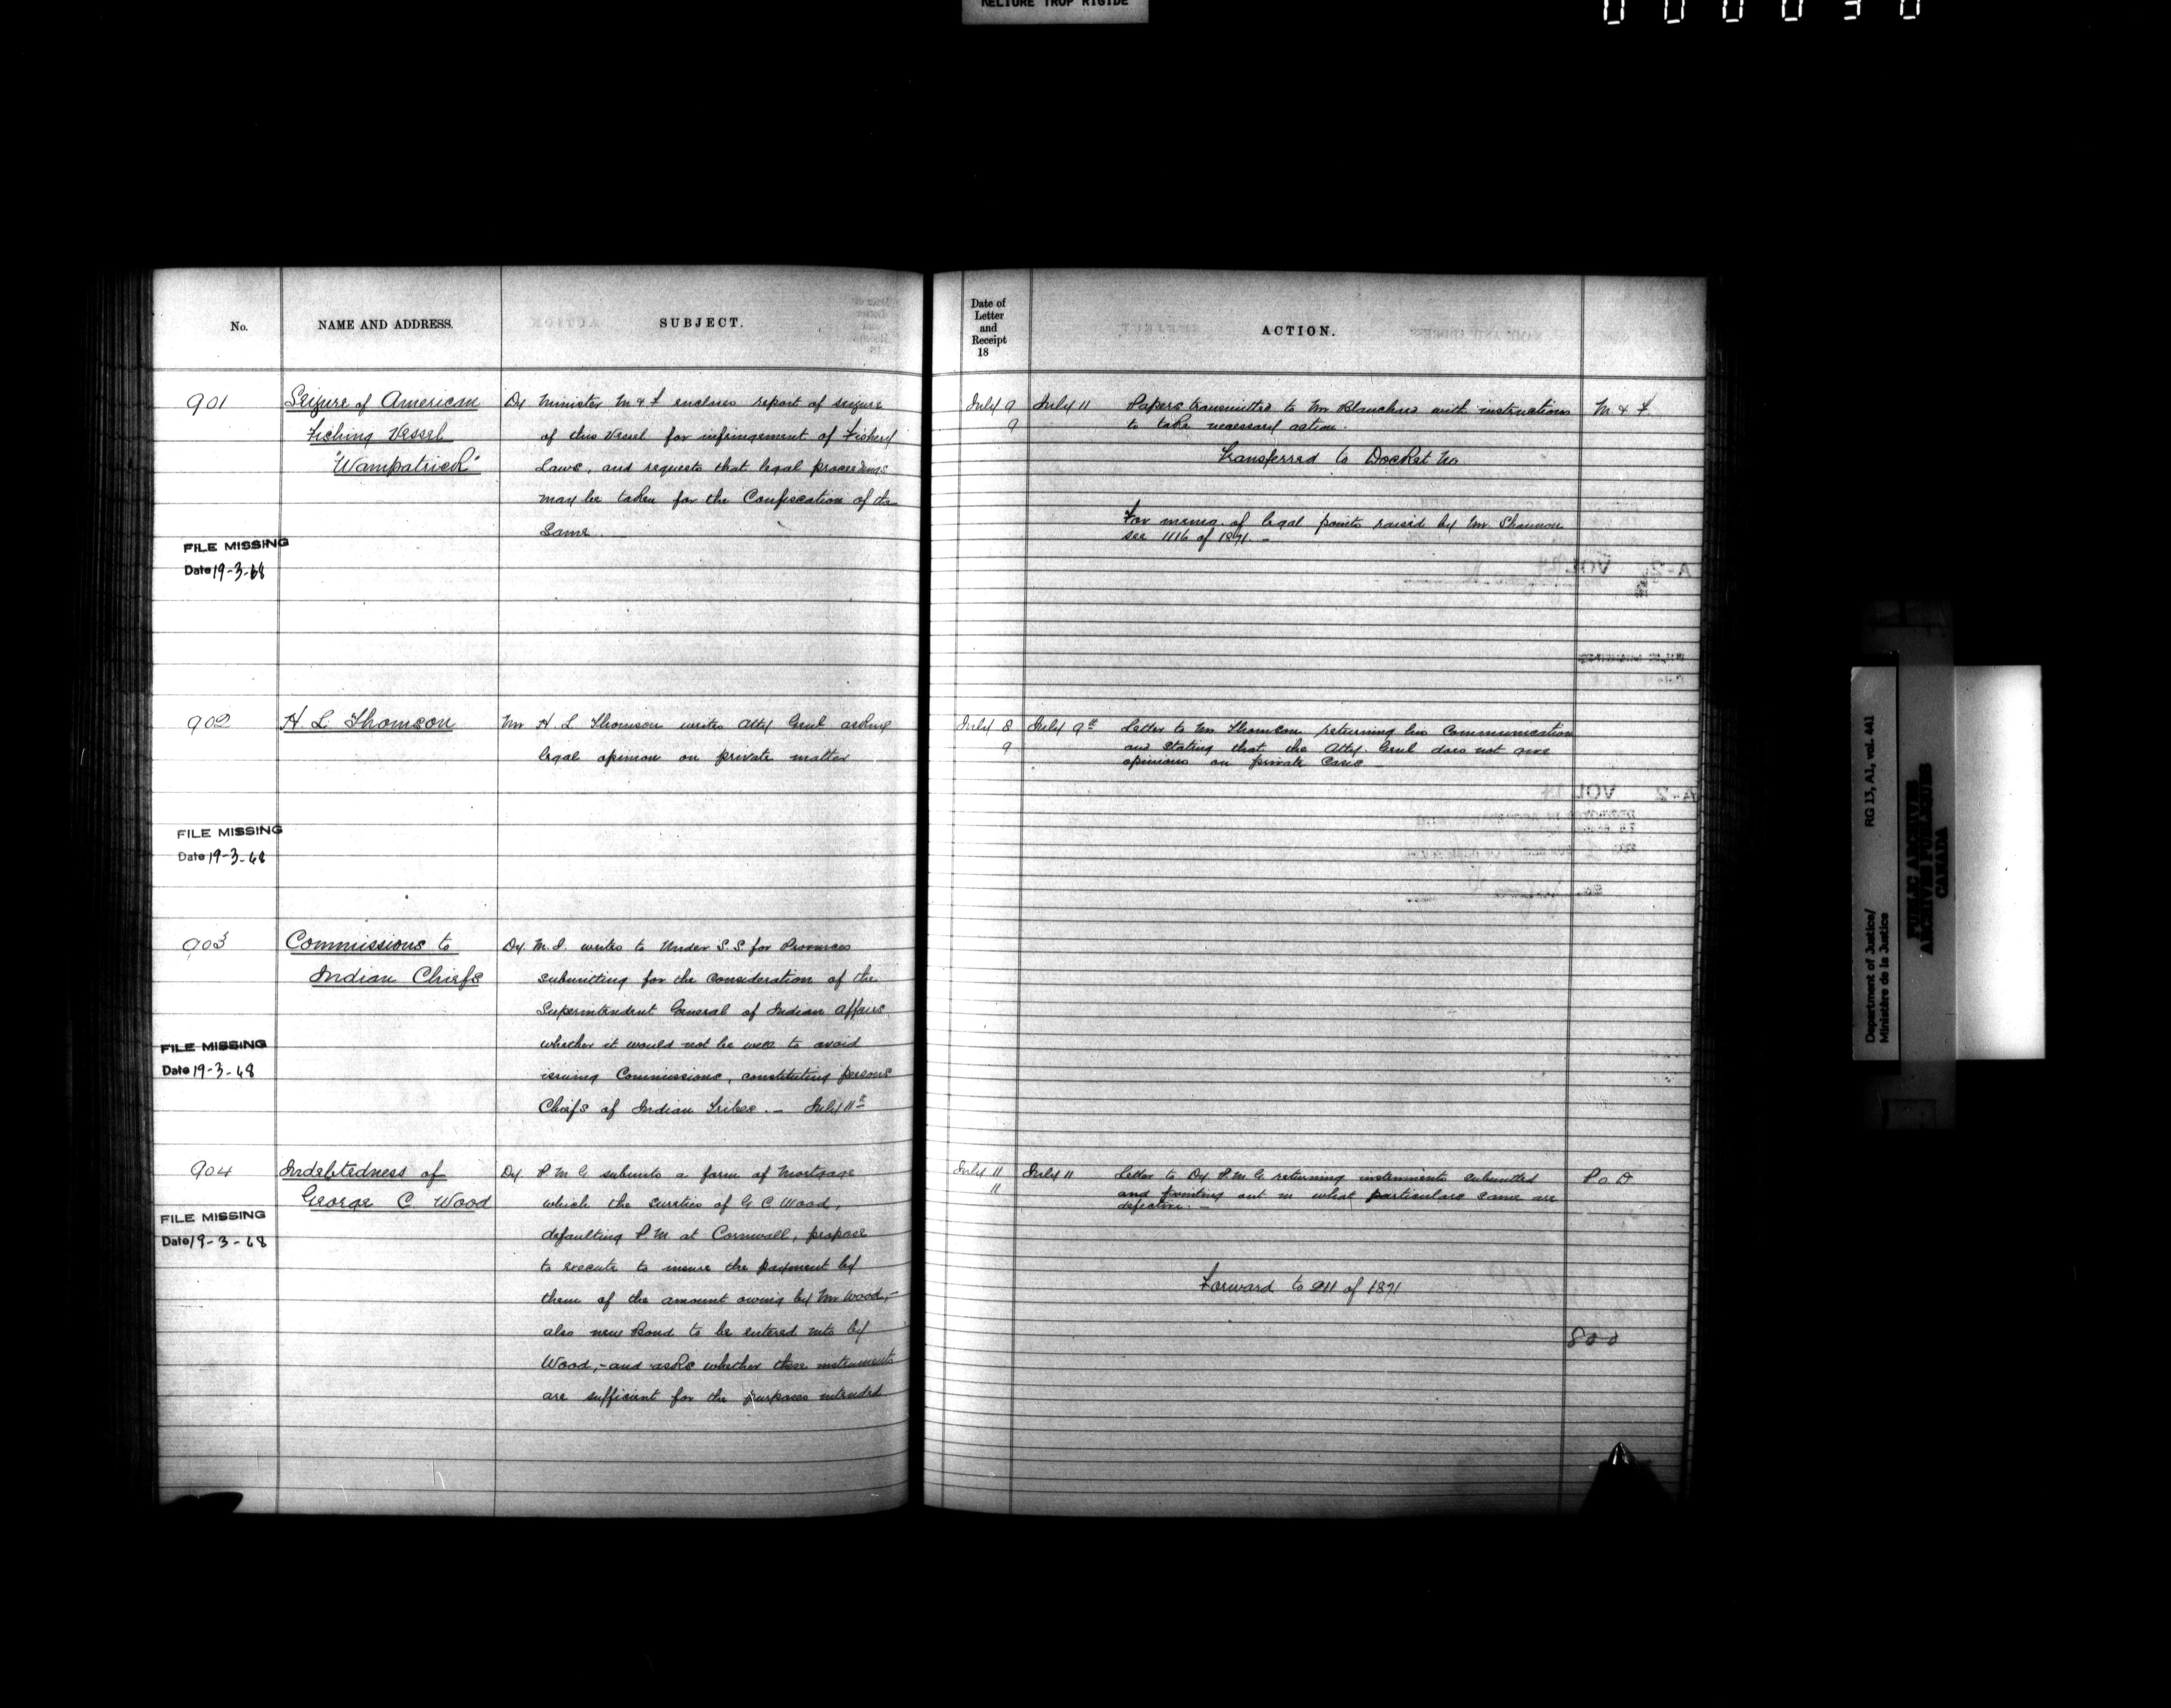 RELIURE TROP RIGIDE
000030
No.
NAME AND ADDRESS.
SUBJECT.
901
Seizure of American
Fishing Vessel
"Wampatrick"
Dy Minister M & F encloses report of seizure
of this Vessel for infringement of Fishery
Laws, and requests that legal proceedings
may be taken for the Confiscation of the
Same.
FILE MISSING
Date 19-3-68
902
H L Thomson
Mr H L Thomson writes Atty Genl asking
legal opinion on private matter
FILE MISSING
Date 19-3-68
903
Commissions to
Indian Chiefs
Dy. M. J. writes to Under S. S. for Provinces
submitting for the consideration of the
Superintendent General of Indian Affairs
whether it would not be well to avoid
issuing Commissions, constituting persons
Chiefs of Indian Tribes. – July 11th
FILE MISSING
Date 19-3-68
904
Indebtedness of
George C. Wood
Dy. P M G submits a form of Mortgage
which the sureties of G C Wood,
defaulting P.M. at Cornwall, propose
to execute to insure the payment by
them of the amount owing by Mr Wood,–
also new Bond to be entered into by
Wood,–and asks whether these instruments
are sufficient for the purposes intended
FILE MISSING
Date 19-3-68
Date of
Letter
and
Receipt
18
ACTION.
July 9
9
July 11
Papers transmitted to Mr Blanchard with instructions
to take necessary action.
M & F.
Transferred to Docket No
For memo. of legal points raised by Mr. Shannon
see 1116 of 1871. –
July 8
9
July 9th
Letter to Mr Thomson returning his Communication
and Stating that the Atty. Genl does not give
opinions on private Cases
July 11
11
July 11
Letter to Dy. P. M. G returning instruments submitted
and pointing out in what particulars same are
defective. –
P O D
Forward to 911 of 1871
800
Department of Justice/
Ministère de la Justice
RG 13, A1, vol. 441
PUBLIC ARCHIVES
ARCHIVES PUBLIQUES
CANADA